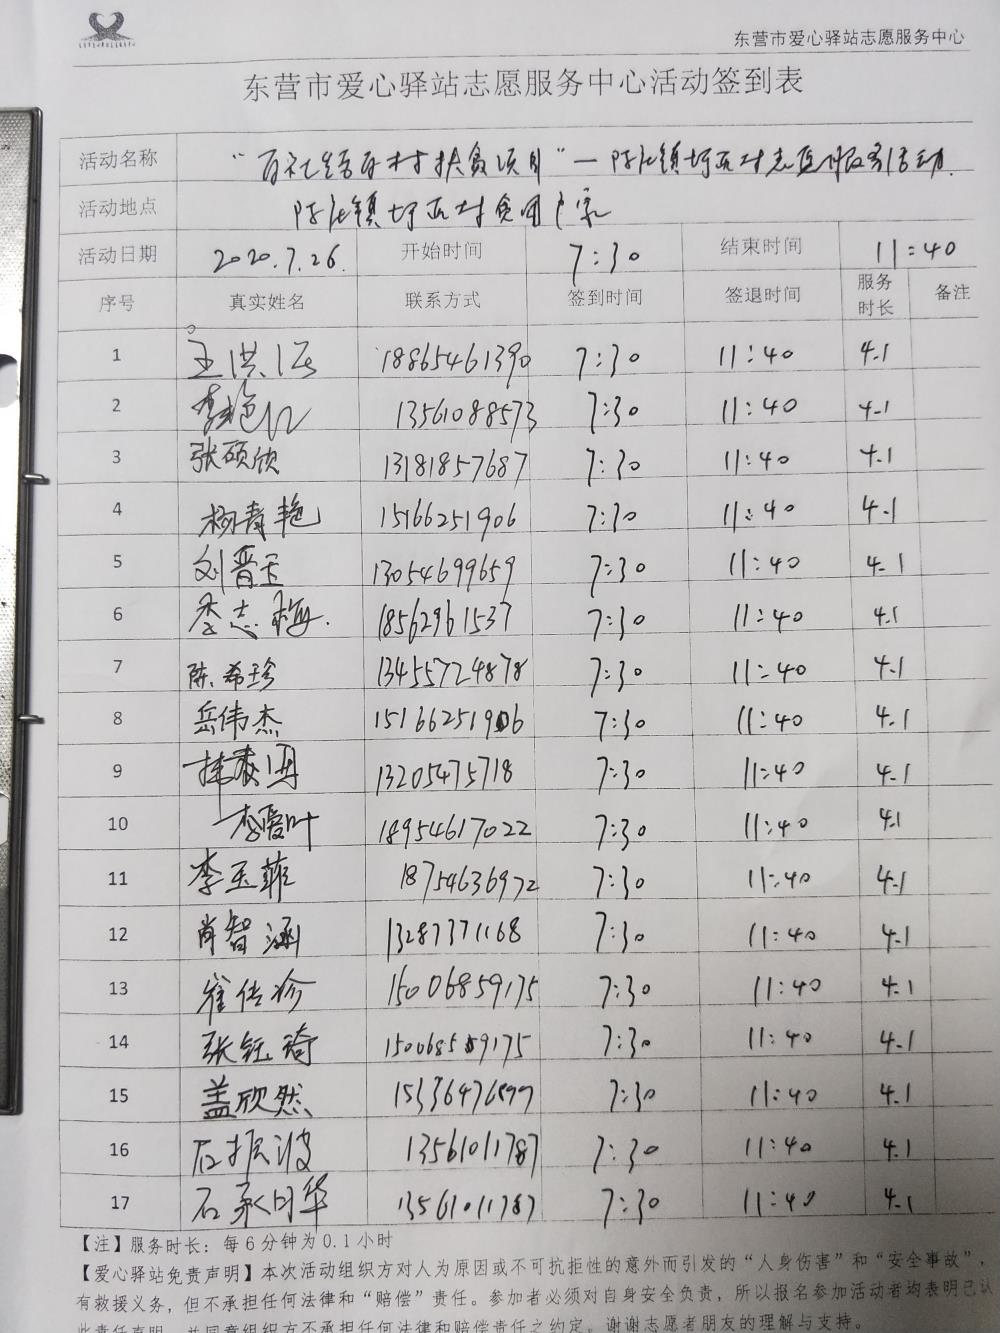 东营市爱心驿站志愿服务中心
东营市爱心驿站志愿服务中心活动签到表
活动名称 “百社结百村扶贫项目”一陈庄镇 村志愿服务活动.
活动地点 陈庄镇 村贫困户家
活动日期 2020.7.26. 开始时间 7:30 结束时间 11:40
序号 真实姓名 联系方式 签到时间 签退时间 服务时长 备注
1 王洪 18865461390 7:30 11:40 4.1
2 李艳红 13561088573 7:30 11:40 4.1
3 张硕欣 13181857687 7:30 11:40 4.1
4 杨青艳 15166251906 7:30 11:40 4.1
5 刘晋玉 13054699659 7:30 11:40 4.1
6 李志梅. 18562961537 7:30 11:40 4.1
7 陈希珍 13455724878 7:30 11:40 4.1
8 岳伟杰 15166251906 7:30 11:40 4.1
9 13205475718 7:30 11:40 4.1
10 李爱叶 18954617022 7:30 11:40 4.1
11 李玉菲 18754636972 7:30 11:40 4.1
12 肖智涵 13287371168 7:30 11:40 4.1
13 崔传珍 15006859175 7:30 11:40 4.1
14 张钰琦 15006859175 7:30 11:40 4.1
15 盖欣然 15336476899 7:30 11:40 4.1
16 石振波 13561011787 7:30 11:40 4.1
17 石承日华 13561011787 7:30 11:40 4.1
【注】服务时长：每6分钟为0.1小时
【爱心驿站免责声明】本次活动组织方对人为原因或不可抗拒性的意外而引发的“人身伤害”和“安全事故”，
有救援义务，但不承担任何法律和“赔偿”责任。参加者必须对自身安全负责，所以报名参加活动者均表明已认
此责任声明，并同意组织方不承担任何法律和赔偿责任之约定。谢谢志愿者朋友的理解与支持。